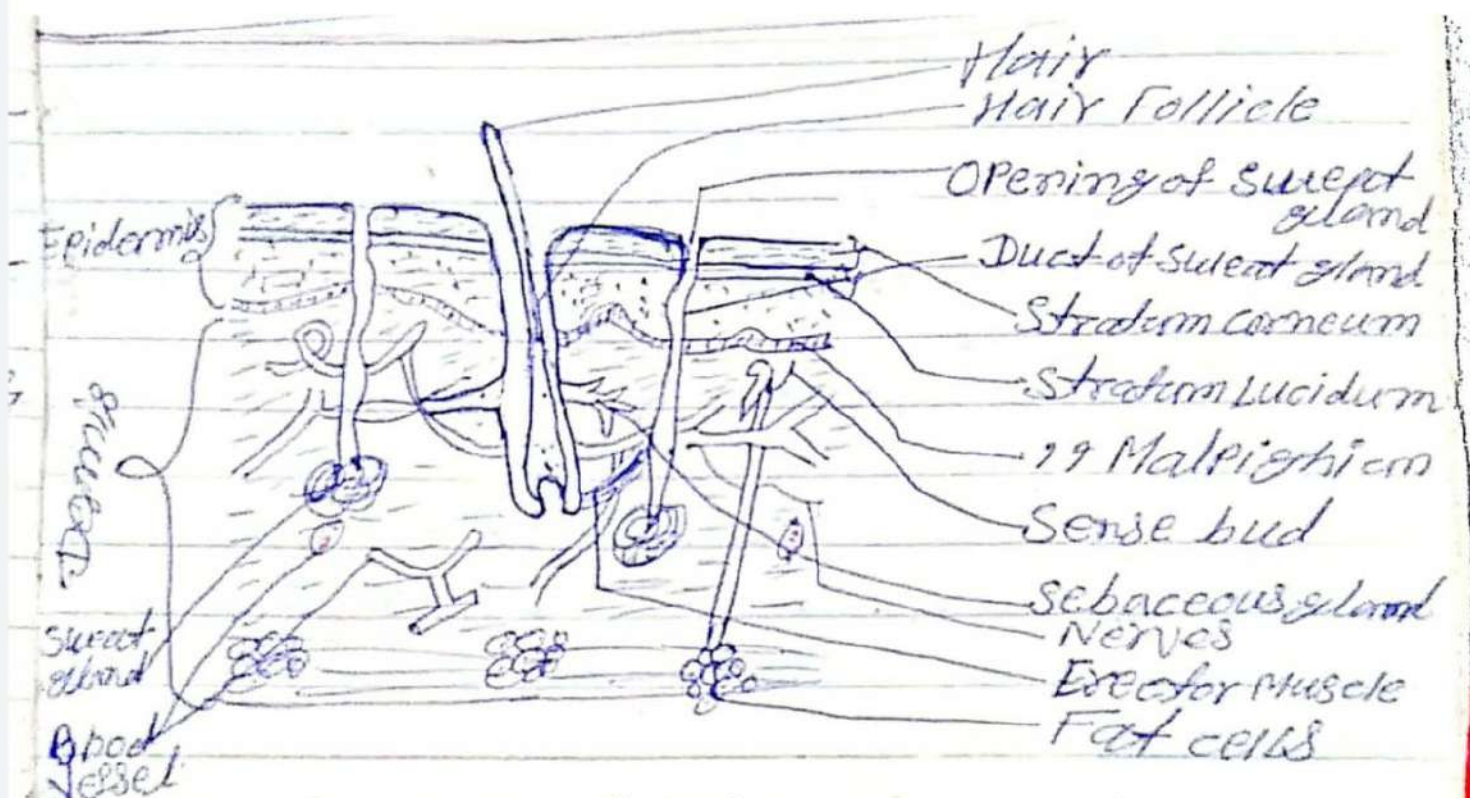 Hair
Hair Follicle
Opening of Sweat
gland
Duct of Sweat gland
Stratum corneum
Stratum Lucidum
,, Malpighian
Sense bud
Sebaceous gland
Nerves
Erector Muscle
Fat cells
Epidermis
Sweat
gland
Blood
Vessel